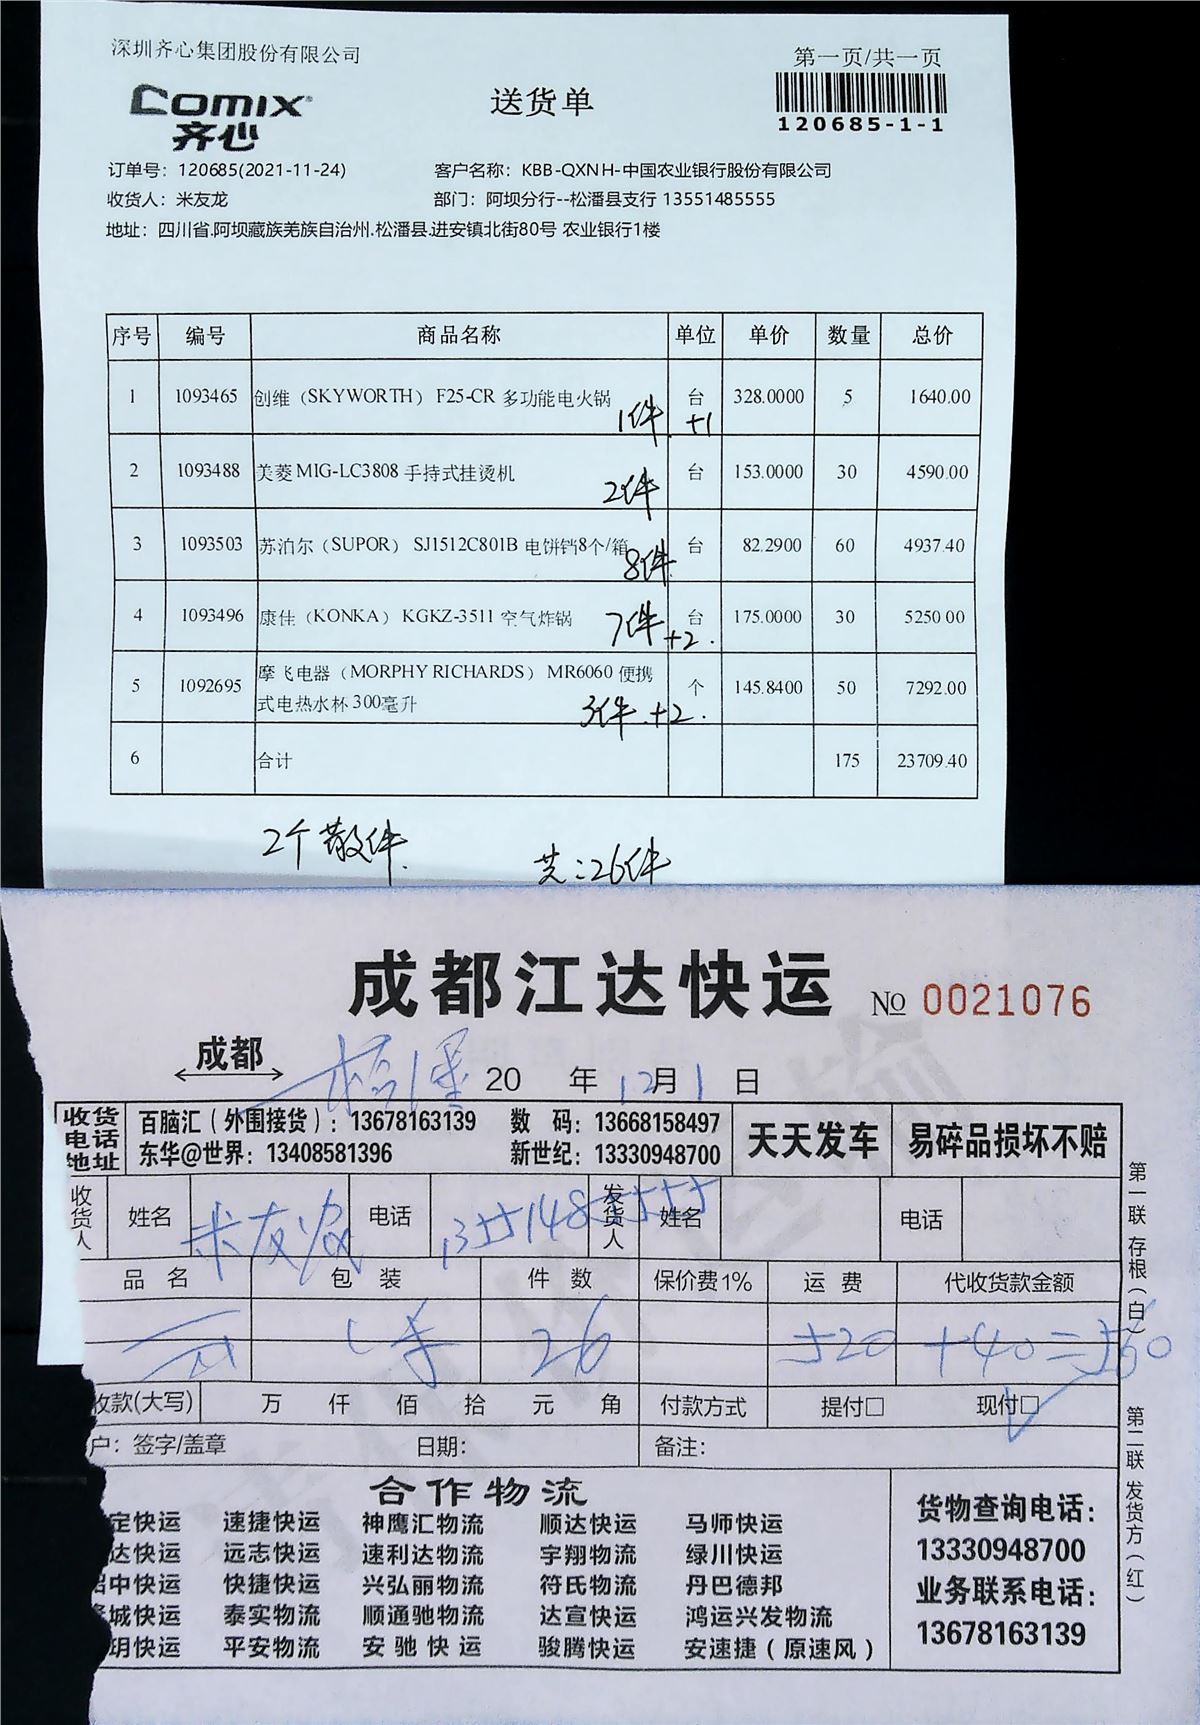 深圳齐心集团股份有限公司
第一页/共一页
Comix
齐心
送货单
120685-1-1
订单号：120685(2021-11-24)
客户名称：KBB-QXNH-中国农业银行股份有限公司
收货人：米友龙
部门：阿坝分行--松潘县支行 13551485555
地址：四川省.阿坝藏族羌族自治州.松潘县.进安镇北街80号 农业银行1楼
序号 编号 商品名称 单位 单价 数量 总价
1 1093465 创维（SKYWORTH） F25-CR 多功能电火锅 台 328.0000 5 1640.00
1件 +1
2 1093488 美菱 MIG-LC3808 手持式挂烫机 台 153.0000 30 4590.00
2件
3 1093503 苏泊尔（SUPOR） SJ1512C801B 电饼铛8个/箱 台 82.2900 60 4937.40
8件
4 1093496 康佳（KONKA） KGKZ-3511 空气炸锅 台 175.0000 30 5250.00
7件+2.
5 1092695 摩飞电器（MORPHY RICHARDS） MR6060 便携 个 145.8400 50 7292.00
式电热水杯 300毫升
3件.+2.
6 合计 175 23709.40
2个散件. 共:26件
成都江达快运 № 0021076
成都 松潘 20 年 12月 1 日
收货电话地址 百脑汇（外围接货）：13678163139 数 码：13668158497 天天发车 易碎品损坏不赔
东华@世界：13408581396 新世纪：13330948700
收货人 姓名 米友龙 电话 13551485555 发货人 姓名 电话
品名 包装 件数 保价费1% 运费 代收货款金额
26 520 +40=560
收款(大写) 万 仟 佰 拾 元 角 付款方式 提付□ 现付□
户：签字/盖章 日期： 备注：
合作物流
定快运 速捷快运 神鹰汇物流 顺达快运 马师快运
达快运 远志快运 速利达物流 宇翔物流 绿川快运
中快运 快捷快运 兴弘丽物流 符氏物流 丹巴德邦
城快运 泰实物流 顺通驰物流 达宣快运 鸿运兴发物流
玥快运 平安物流 安驰快运 骏腾快运 安速捷（原速风）
货物查询电话：
13330948700
业务联系电话：
13678163139
第一联 存根（白）
第二联 发货方（红）